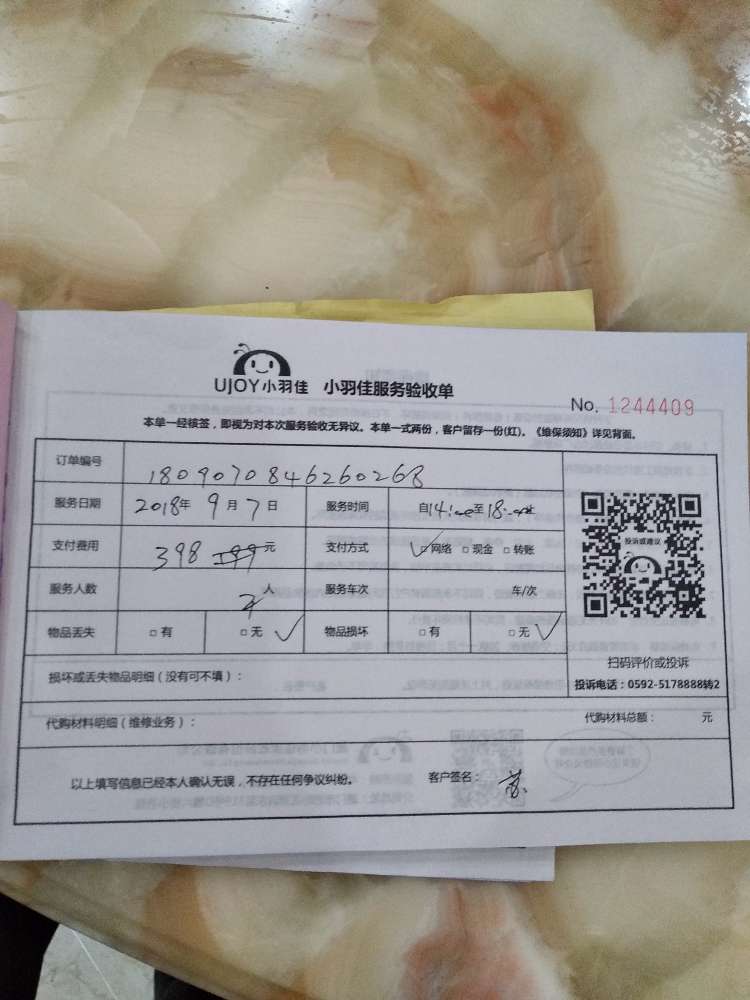 UJOY小羽佳 小羽佳服务验收单
No. 1244409
本单一经核签，即视为对本次服务验收无异议。本单一式两份，客户留存一份(红)。《维保须知》详见背面。
订单编号 1809070846260268
服务日期 2018年 9月 7日 服务时间 自14:00至18:00止
支付费用 398 199元 支付方式 ✓□网络 □现金 □转账
服务人数 2人 服务车次 车/次
物品丢失 □有 □无✓ 物品损坏 □有 □无✓
投诉或建议
扫码评价或投诉
投诉电话：0592-5178888转2
损坏或丢失物品明细（没有可不填）：
代购材料明细（维修业务）： 代购材料总额： 元
以上填写信息已经本人确认无误，不存在任何争议纠纷。 客户签名：